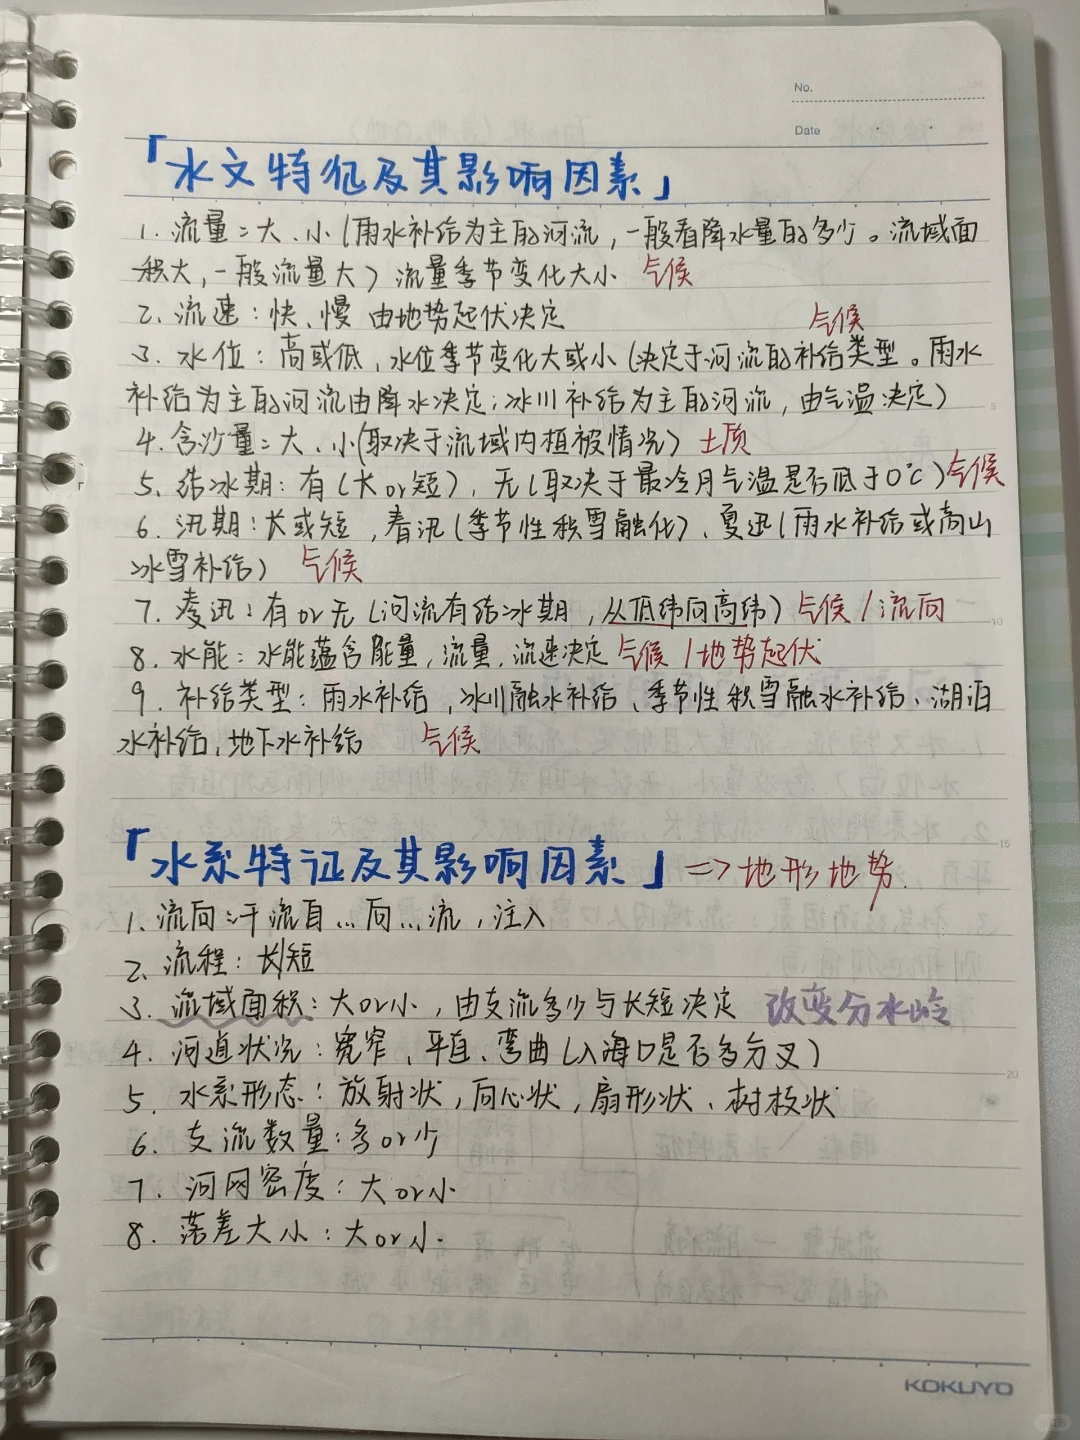 No.
Date
「水文特征及其影响因素」
1. 流量：大、小（雨水补给为主的河流，一般看降水量的多少。流域面
积大，一般流量大）流量季节变化大小 气候
2. 流速：快、慢 由地势起伏决定
气候
3. 水位：高或低，水位季节变化大或小（决定于河流的补给类型。雨水
补给为主的河流由降水决定；冰川补给为主的河流，由气温决定）
4. 含沙量：大、小（取决于流域内植被情况）土质
5. 结冰期：有（长or短），无（取决于最冷月气温是否低于0℃）气候
6. 汛期：长或短，春汛（季节性积雪融化）、夏汛（雨水补给或高山
冰雪补给） 气候
7. 凌汛：有or无（河流有结冰期，从低纬向高纬）气候/流向
8. 水能：水能蕴含能量，流量，流速决定 气候/地势起伏
9. 补给类型：雨水补给，冰川融水补给、季节性积雪融水补给、湖泊
水补给，地下水补给 气候
「水系特征及其影响因素」=>地形地势.
1. 流向：干流自…向…流，注入
2. 流程：长/短
3. 流域面积：大or小，由支流多少与长短决定 改变分水岭
4. 河道状况：宽窄、平直、弯曲（入海口是否多分叉）
5. 水系形态：放射状，向心状，扇形状、树枝状
6. 支流数量：多or少
7. 河网密度：大or小
8. 落差大小：大or小.
KOKUYO